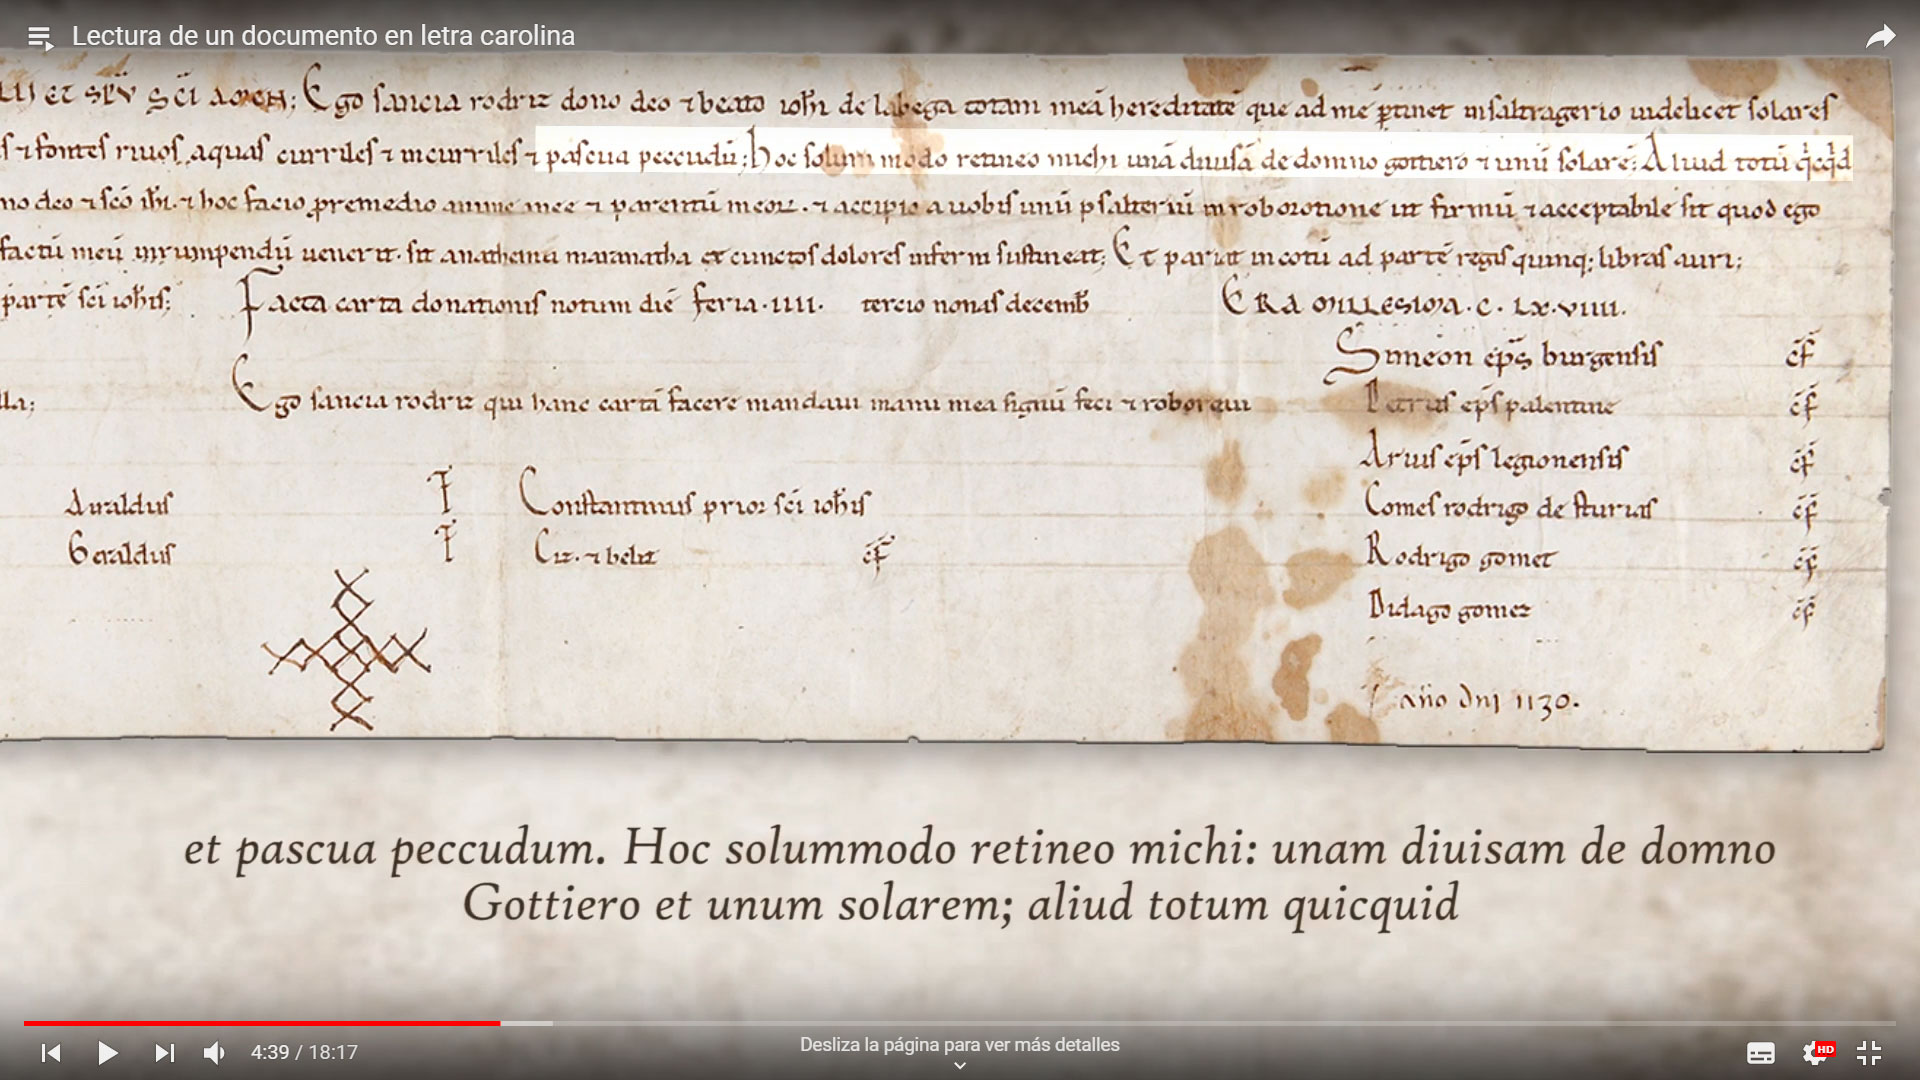 Lectura de un documento en letra carolina
ET SPV SCI AMEN; Ego sancia rodriz dono deo ⁊ beato ioħi de labega totam meā hereditatē que ad me ꝑtinet insaltragerio uidelicet solares
s ⁊ fontes riuos aquas curriles ⁊ incurriles ⁊ pascua peccudū; Hoc solum modo retineo michi unā diuisā de domno gottiero ⁊ unū solarē; Aliud totū qicqid
no deo ⁊ scō ihi. ⁊ hoc facio premedio anime mee ⁊ parentū meoꝝ. ⁊ accipio auobis unū psalteriū inroborotione ut firmū ⁊ acceptabile sit quod ego
factū meū inrumpendū uenerit. sit anathema maranatha et cunctos dolores inferni sustineat; Et pariat incotū ad partē regis quinq; libras auri;
partē sci ioħis; Facta carta donationis notum diē feria .IIII. tercio nonas decemb ERA MILLESIMA. C. LX. VIIII.
Simeon eps burgensis cf
lla; Ego sancia rodriz qui hanc cartā facere mandaui manu mea signū feci ⁊ roboraui Petrus eps palentine cf
Arius eps legionensis cf
Auraldus T Constantinus prior sci ioħis Comes rodrigo de sturias cf
Geraldus T Ciz. ⁊ belit cf Rodrigo gomet cf
Didago gomez cf
año dni 1130.
et pascua peccudum. Hoc solummodo retineo michi: unam diuisam de domno
Gottiero et unum solarem; aliud totum quicquid
4:39 / 18:17
Desliza la página para ver más detalles
HD